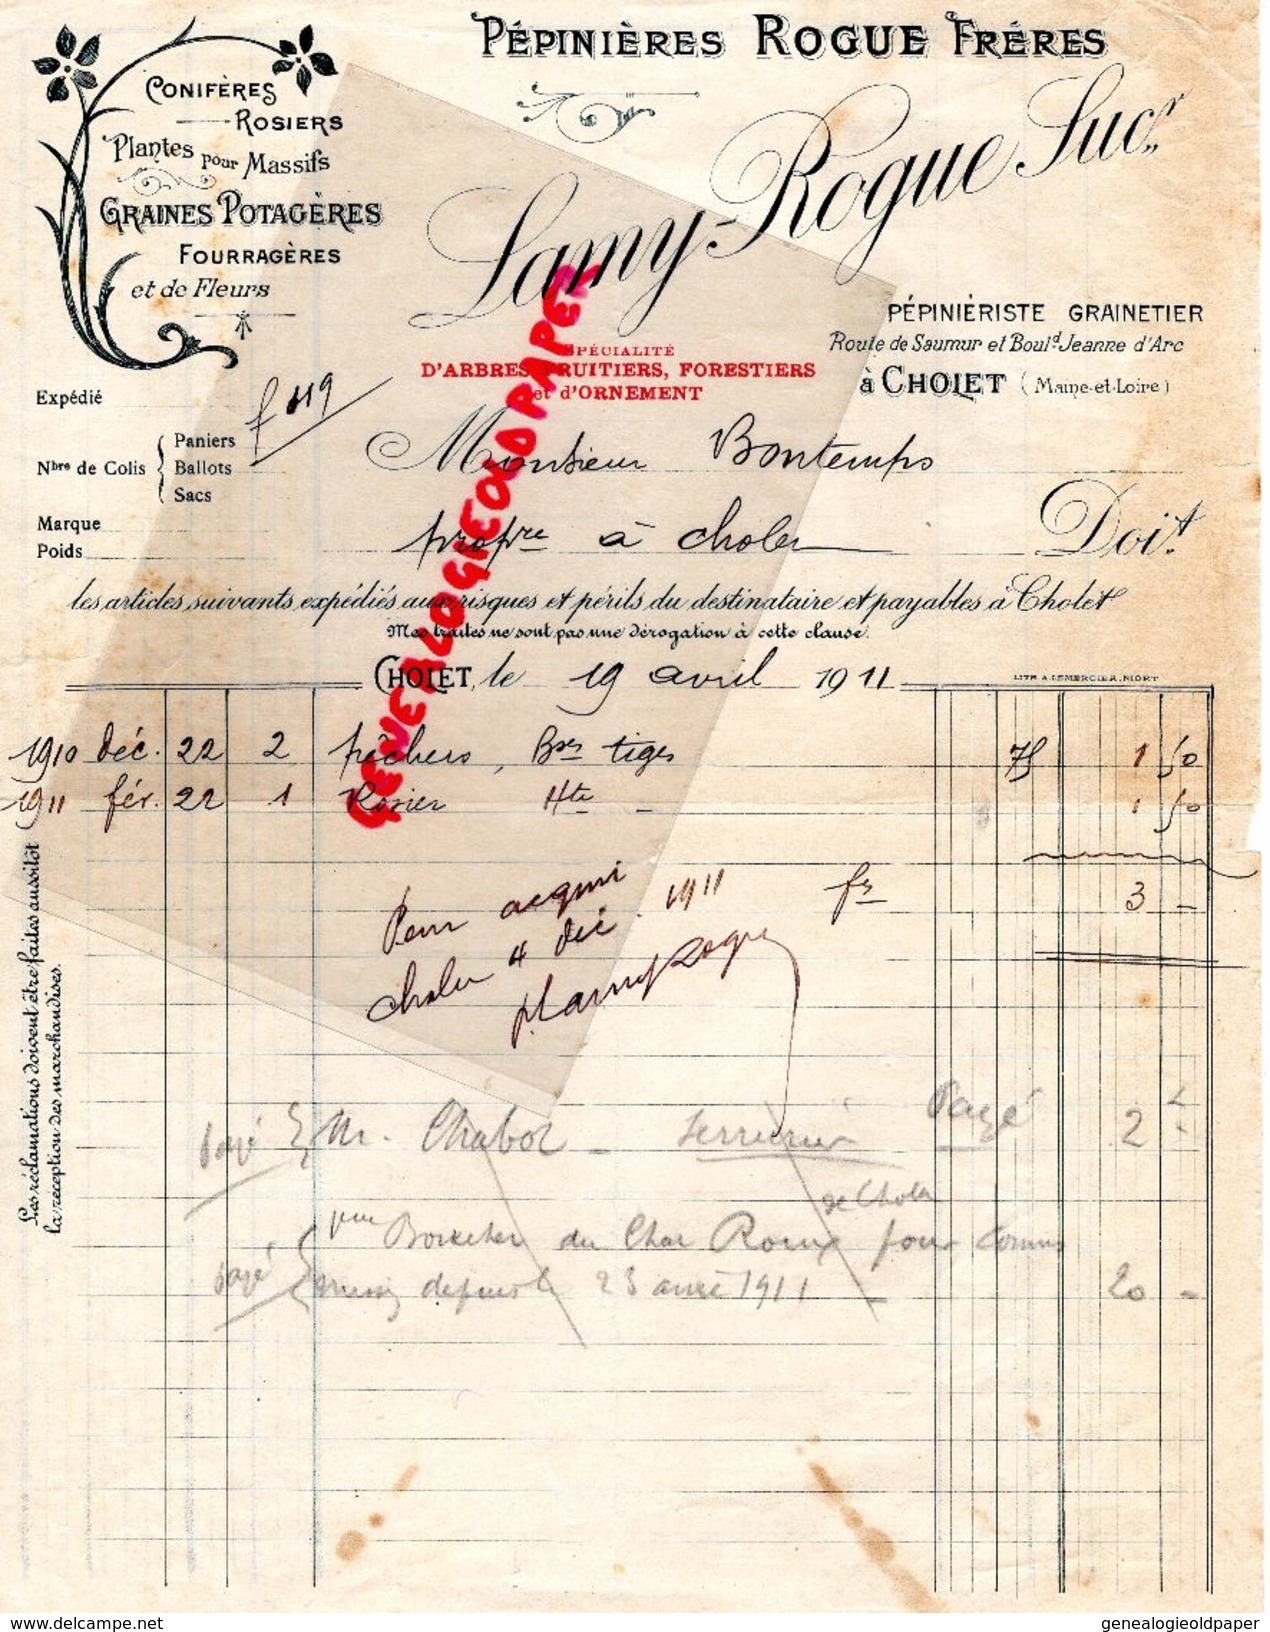 PÉPINIÈRES ROGUE FRÉRES
CONIFÈRES
ROSIERS
Plantes pour Massifs
GRAINES POTAGÈRES
FOURRAGÈRES
et de Fleurs
Lamy-Rogue Sucr
PÉPINIÉRISTE GRAINETIER
Route de Saumur et Bould Jeanne d'Arc
à CHOLET (Maine-et-Loire)
SPÉCIALITÉ
D'ARBRES FRUITIERS, FORESTIERS
et d'ORNEMENT
Expédié
fo 119
Nbre de Colis
Paniers
Ballots
Sacs
Marque
Poids
Monsieur Bontemps
propre à Cholet
Doit
les articles suivants expédiés aux risques et périls du destinataire et payables à Cholet
Mes traites ne sont pas une dérogation à cette clause.
CHOLET, le 19 avril 1911
LITH. A. LEMERCIER, NIORT
1910 déc. 22 2 pêchers, Bses tiges 75 1 50
1911 fév. 22 1 Rosier Hte - 1 50
fs 3 -
Pour acquit
Cholet 4 déc. 1911
Lamy Rogue
Les réclamations doivent être faites aussitôt
la réception des marchandises.
payé M. Chabot - Serrurier Payé 2
de Cholet
du Char Roux pour
payé depuis le 23 1911 - 20 -
GENEALOGIEOLDPAPER
www.delcampe.net
genealogieoldpaper